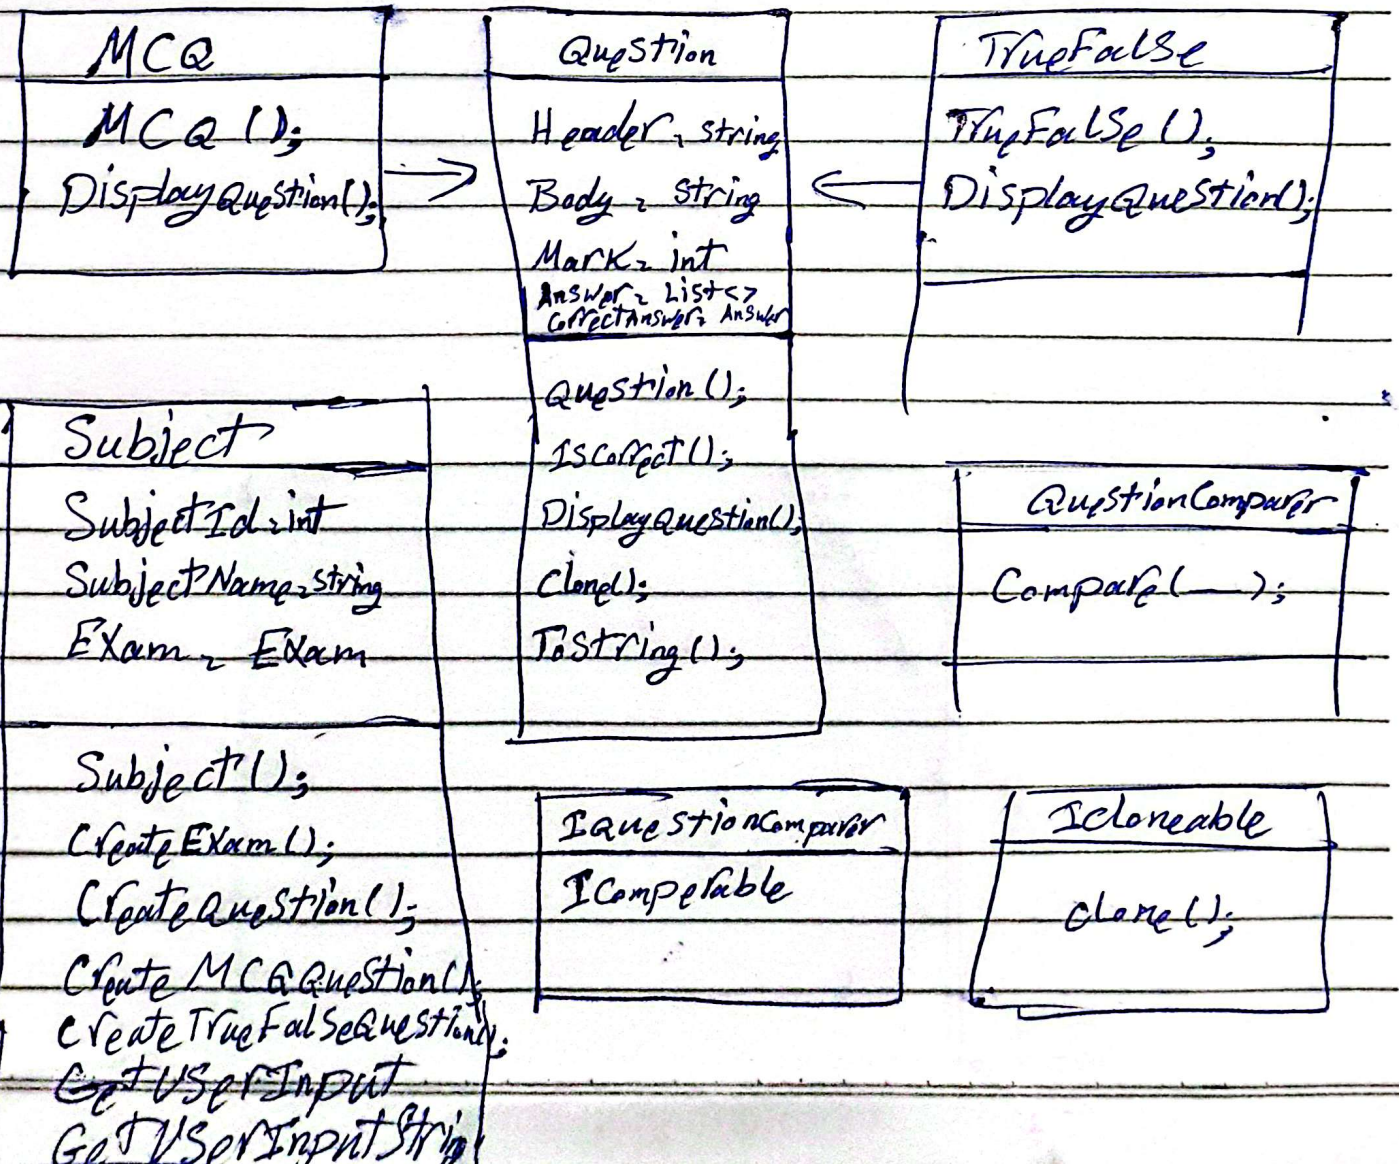 MCQ
MCQ();
DisplayQuestion();
Question
Header: string
Body: string
Mark: int
Answer: List<>
CorrectAnswer: Answer
Question();
IsCorrect();
DisplayQuestion();
Clone();
ToString();
TrueFalse
TrueFalse();
DisplayQuestion();
Subject
SubjectId: int
SubjectName: string
Exam: Exam
Subject();
CreateExam();
CreateQuestion();
Create MCQQuestion();
CreateTrueFalseQuestion();
GetUserInput
GetUserInputString
QuestionComparer
Compare( — );
IQuestionComparer
IComperable
ICloneable
clone();